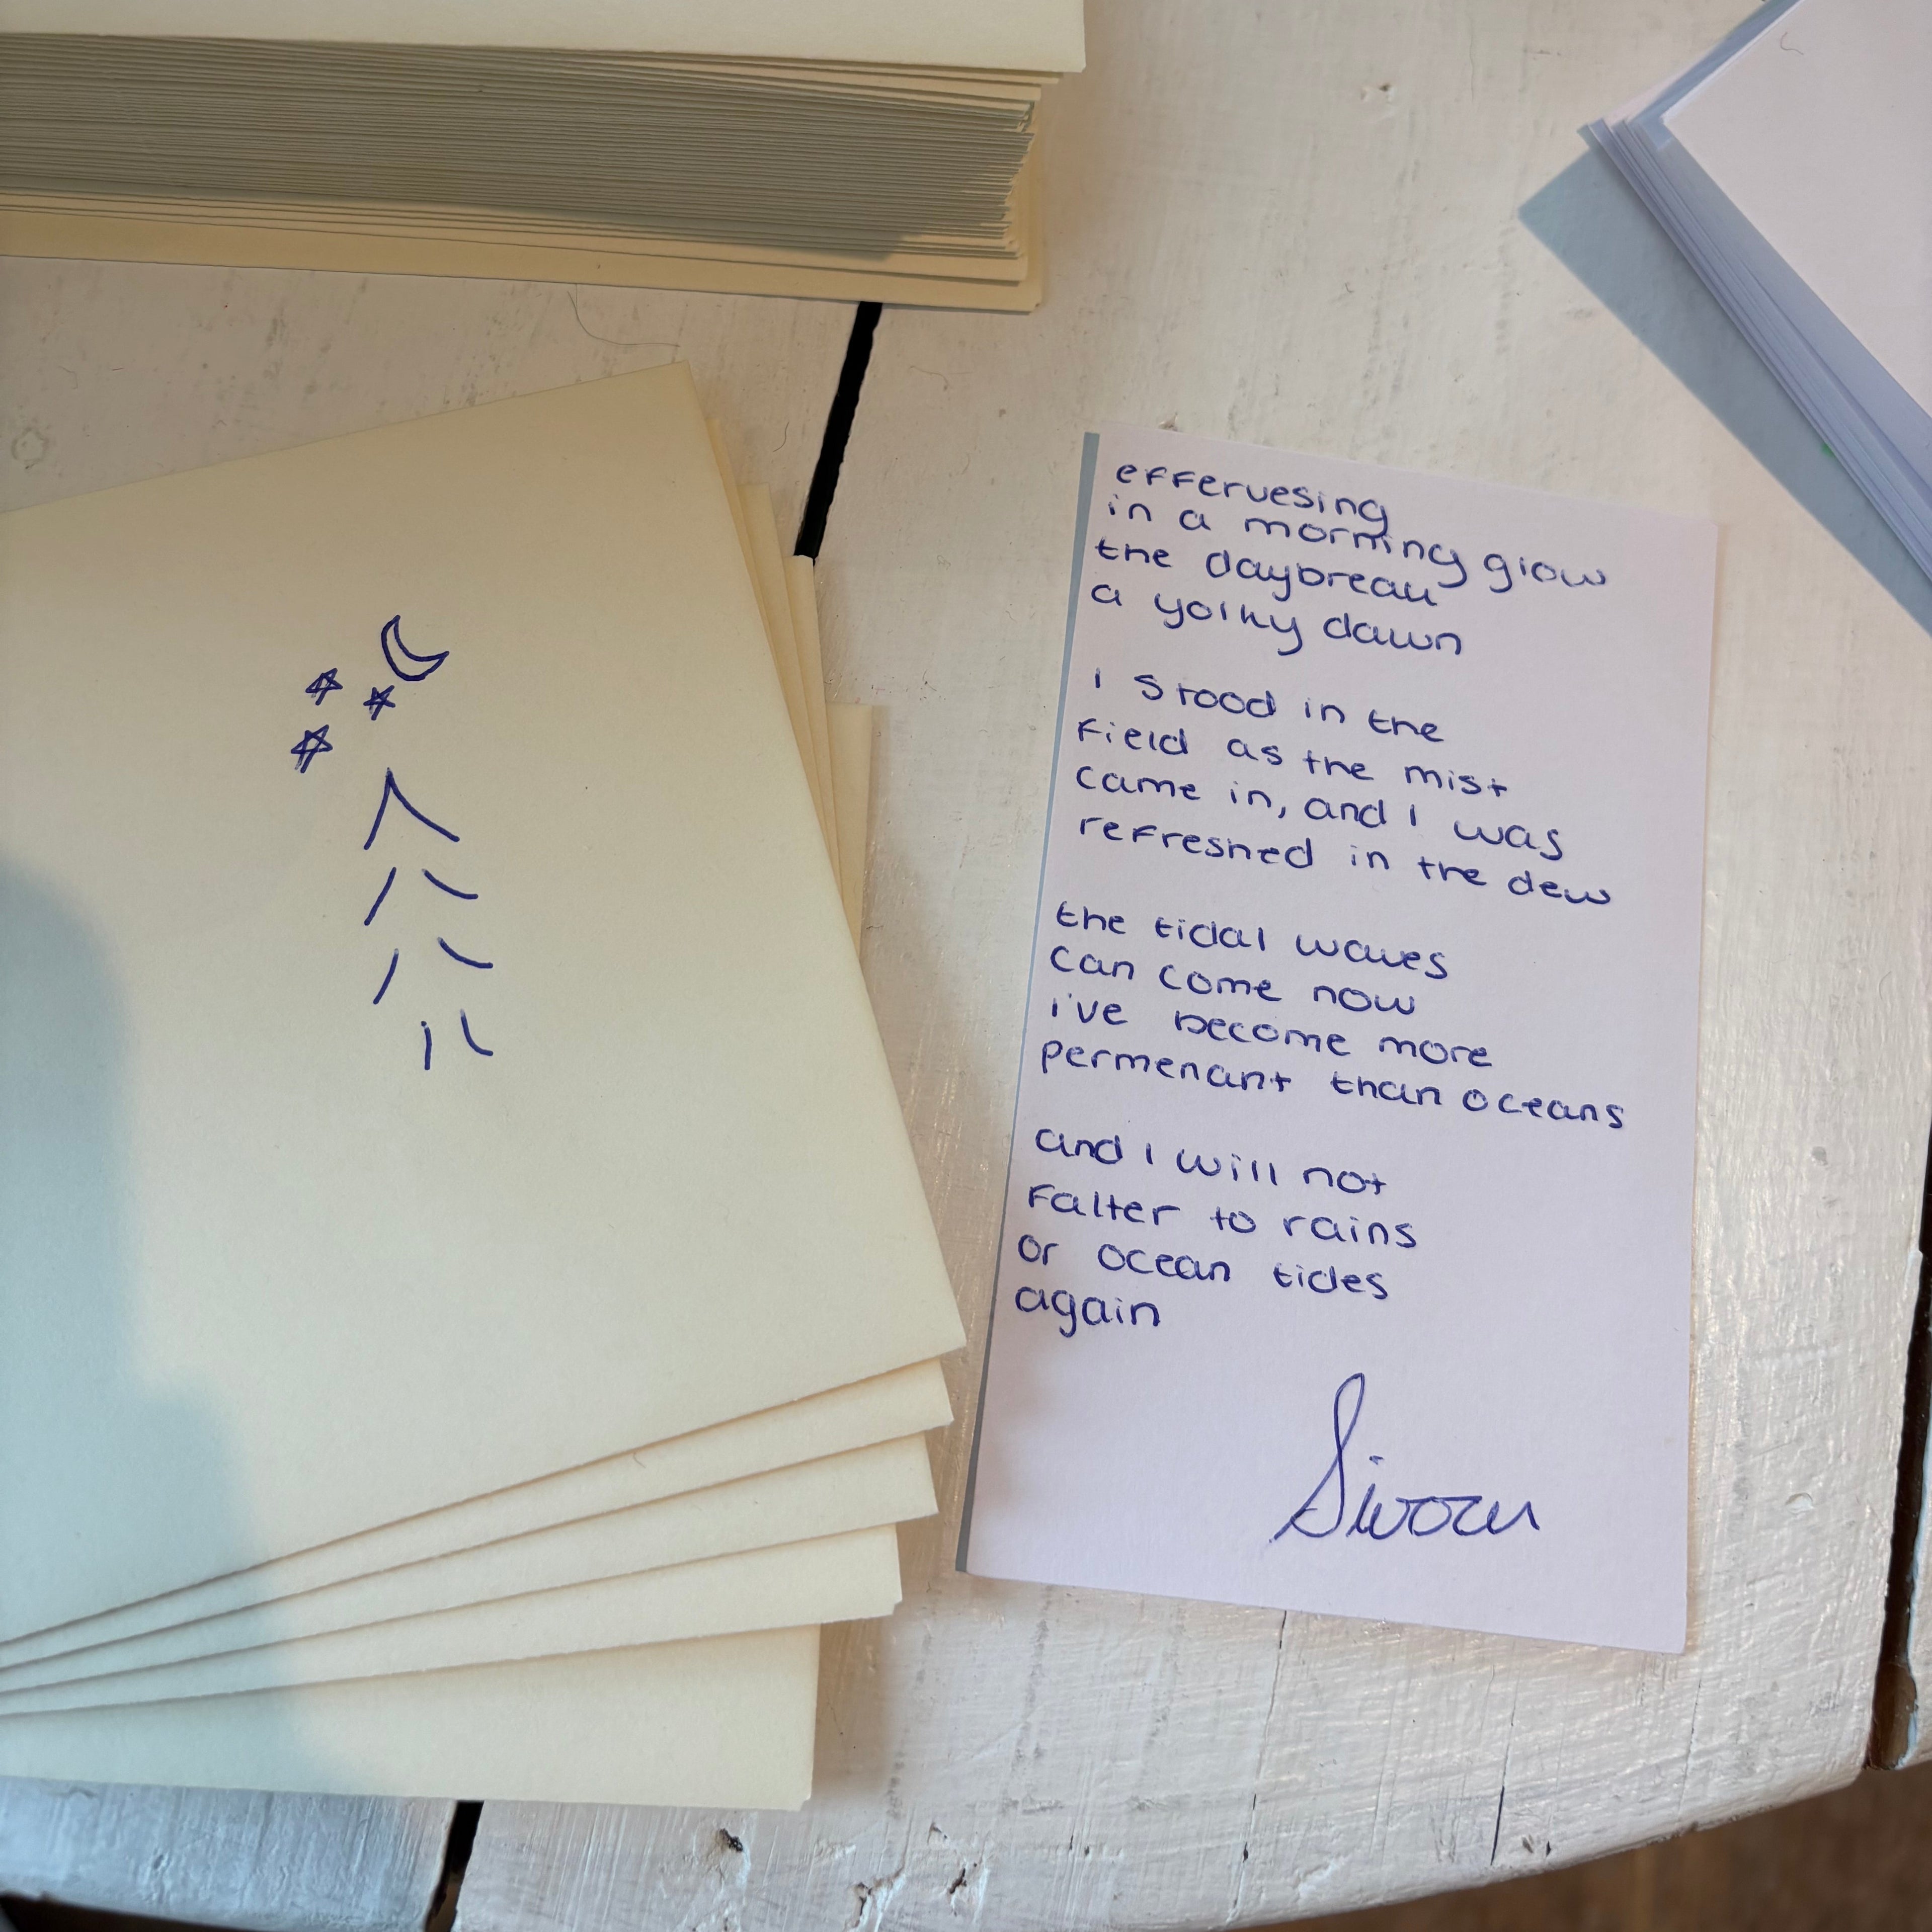 effervesing
in a morning glow
the daybreak
a yolky dawn
i stood in the
field as the mist
came in, and i was
refreshed in the dew
the tidal waves
can come now
i've become more
permenant than oceans
and i will not
falter to rains
or ocean tides
again